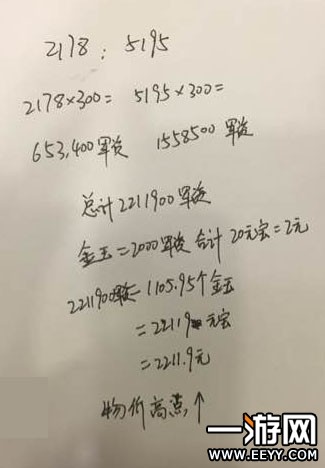 2178 : 5195
2178×300= 5195×300=
653,400军资 1558500军资
总计2211900军资
金玉=2000军资 合计20元宝=2元
2211900军资=1105.95个金玉
=22119元宝
=2211.9元
物价高点↑
一游网
WWW.EEYY.COM